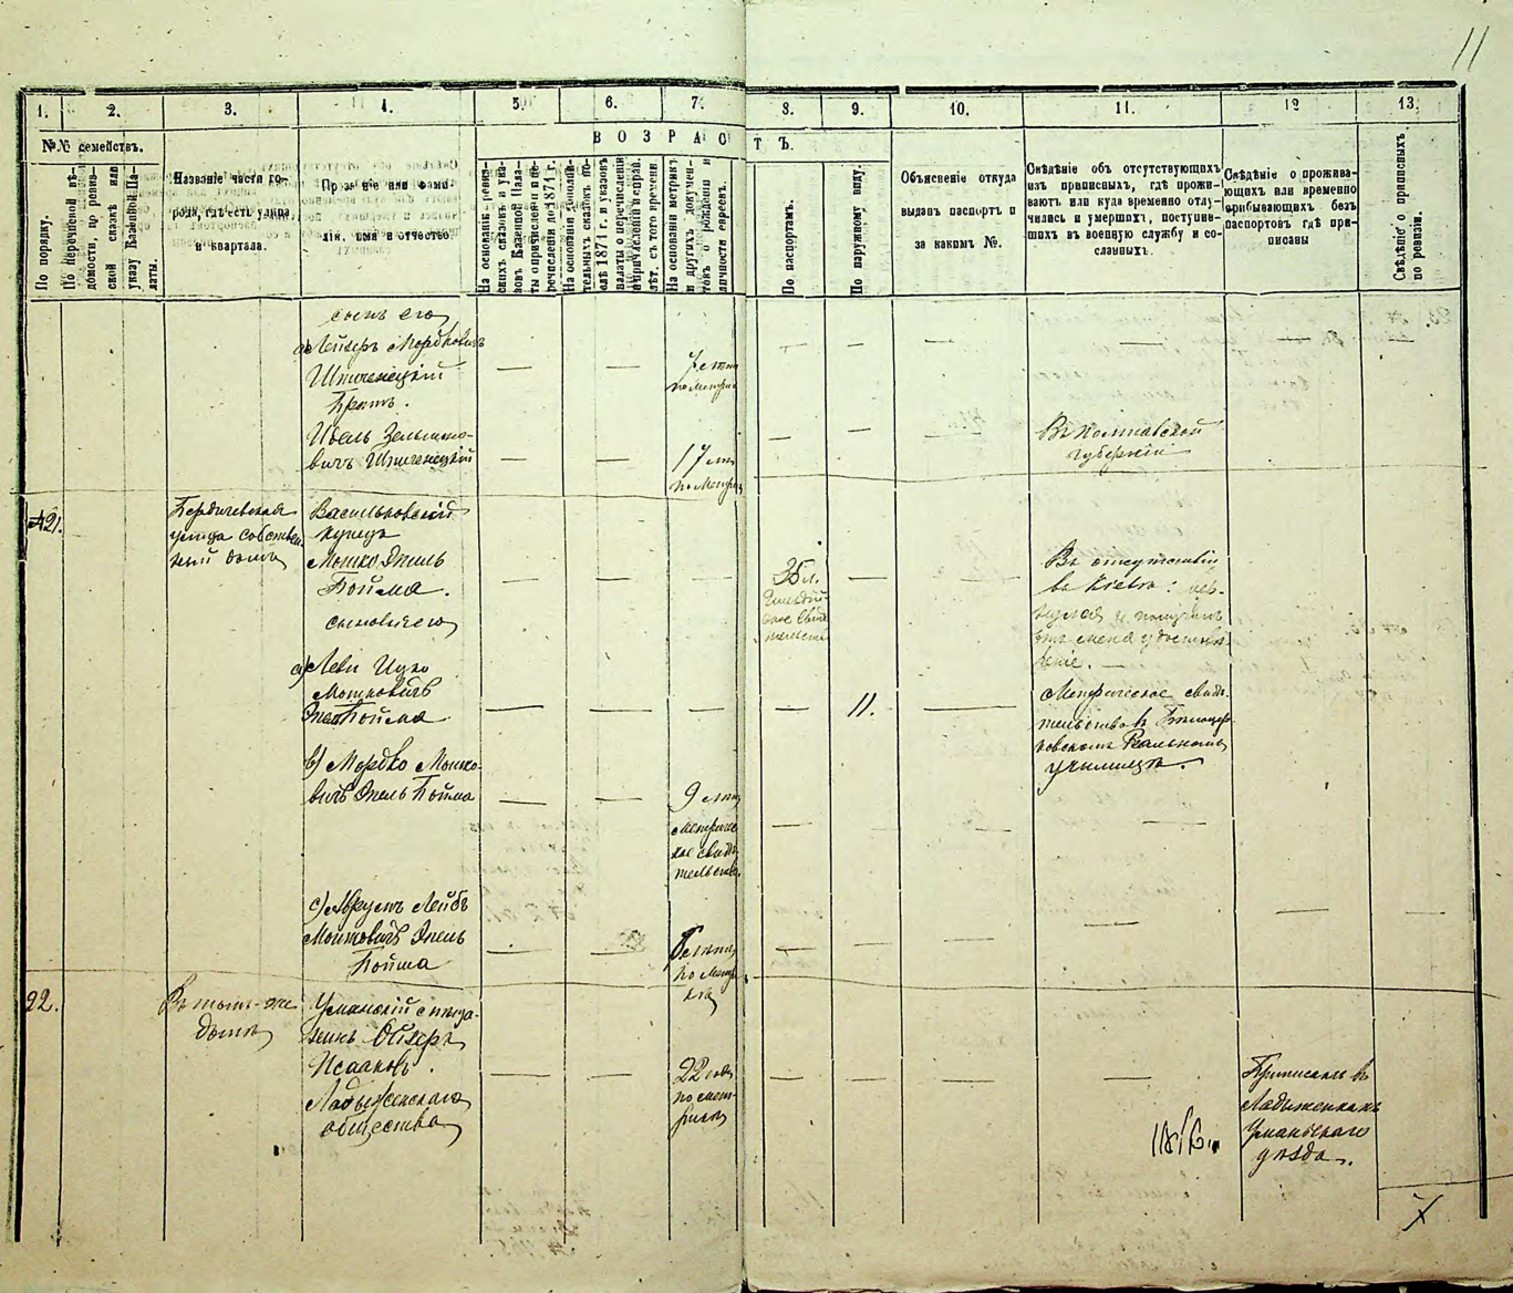 11
1.
2.
3.
4.
5.
6.
7.
8.
9.
10.
11.
12
13.
№№ семействъ.
ВОЗРАСТЪ.
По порядку.
По перечневой вѣ-
домости, по ревиз-
ской сказкѣ или
указу Казенной Па-
латы.
Названіе части го-
рода, гдѣ есть улица
и квартала.
Прозваніе или фами-
лія, имя и отчество.
На основаніи ревиз-
скихъ сказокъ и ука-
зовъ Казенной Пала-
ты о причисленіи и пе-
речисленіи до 1871 г.
На основаніи дополни-
тельныхъ сказокъ по-
слѣ 1871 г. и указовъ
палаты о перечисленіи
и причисленіи и справ.
лѣт. съ того времени.
На основаніи метрикъ
и другихъ докумен-
товъ о рожденіи и
личности евреевъ.
По паспортамъ.
По наружному виду.
Объясненіе откуда
выданъ паспортъ и
за какимъ №.
Свѣдѣніе объ отсутствующихъ
изъ приписныхъ, гдѣ прожи-
ваютъ или куда временно отлу-
чились и умершихъ, поступив-
шихъ въ военную службу и со-
сланныхъ.
Свѣдѣніе о прожива-
ющихъ или временно
прибывающихъ безъ
паспортовъ гдѣ при-
писаны
Свѣдѣніе о приписныхъ
по ревизіи.
сынъ его
а) Лейзеръ Мордковичъ
Штиченецкій
7 лѣтъ
по метрикѣ
Братъ.
Ицель Зельмано-
вичъ Штиченецкій
17 лѣтъ
по метрикѣ
Въ Полтавской
губерніи
21.
Бердичевская
улица собствен-
ный домъ
Васильковскій
купецъ
Мошко Эпель
Бойма.
35 л.
Гильдій-
ское свидѣ-
тельство
Въ отсутствіи
въ Кіевѣ:
сыновья его
а) Леви Ицко
Мошковичъ
Эпель Бойма
11.
Метрическое свидѣ-
тельство въ Бѣлоцер-
ковскомъ Реальномъ
училищѣ.
в) Мордко Мошко-
вичъ Эпель Бойма
9 лѣтъ
метричес-
кое свидѣ-
тельство.
с) Абрумъ Лейбъ
Мошковичъ Эпель
Бойма
лѣтъ
по метри-
кѣ
22.
Въ томъ-же
домѣ
Уманскій мѣща-
нинъ Ойзеръ
Исааковъ.
Ладыженскаго
общества
22 года
по мет-
рикѣ
Приписанъ въ
Ладыженкахъ
Уманьскаго
уѣзда.